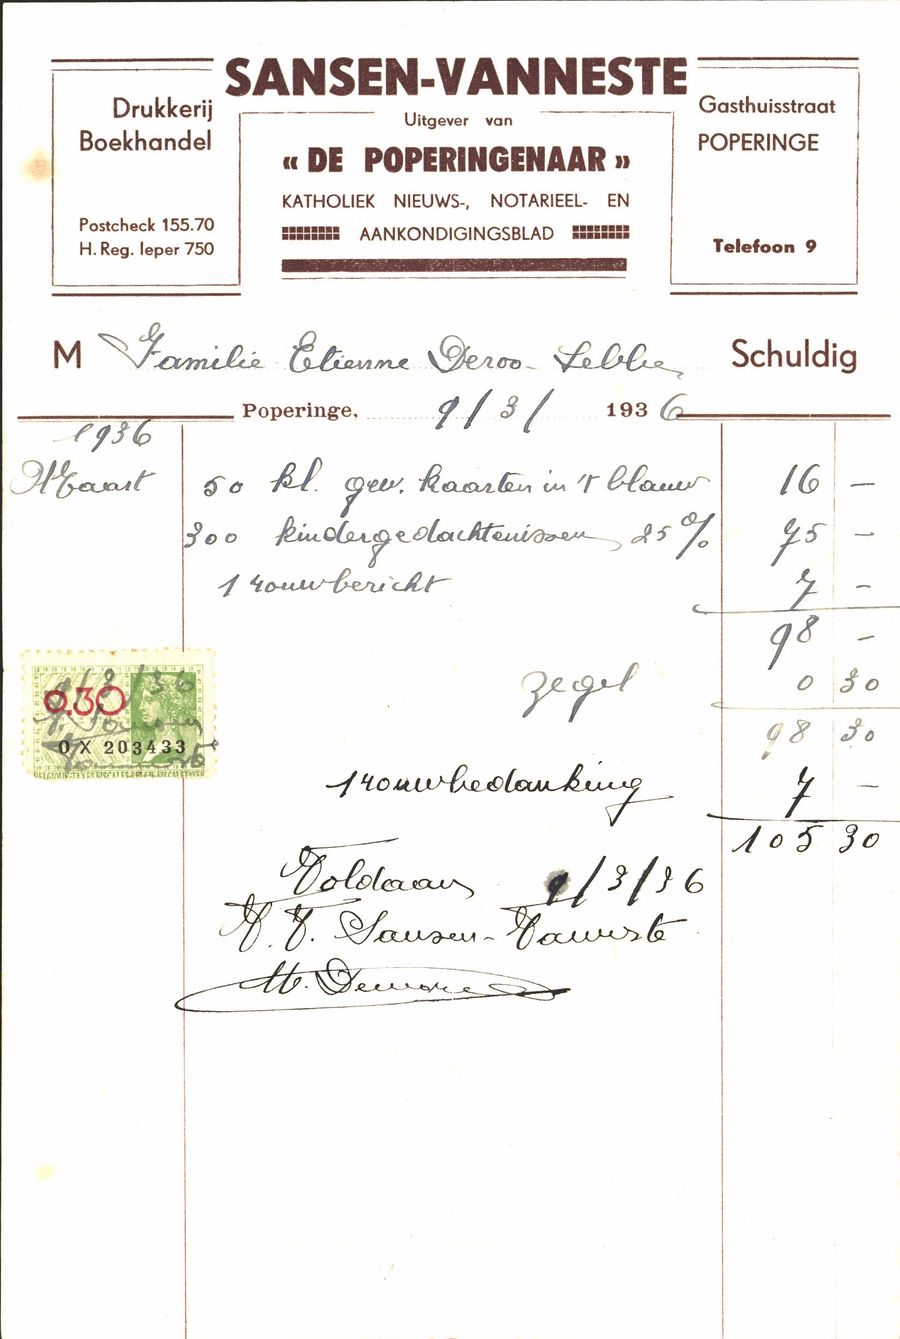 SANSEN-VANNESTE
Drukkerij
Boekhandel
Postcheck 155.70
H. Reg. Ieper 750
Uitgever van
« DE POPERINGENAAR »
KATHOLIEK NIEUWS-, NOTARIEEL- EN
AANKONDIGINGSBLAD
Gasthuisstraat
POPERINGE
Telefoon 9
M Familie Etienne Deroo-Lebbe Schuldig
Poperinge, 9/3/ 1936
1936
Maart 50 kl. gew. kaarten in 't blauw 16 —
300 kindergedachtenissen, 25% 75 —
1 rouwbericht 7 —
98 —
zegel 0 30
98 30
0.30
9/3/36
OX 203433
1 rouwbedanking 7 —
105 30
Voldaan 9/3/36
V. V. Sansen-Vanneste